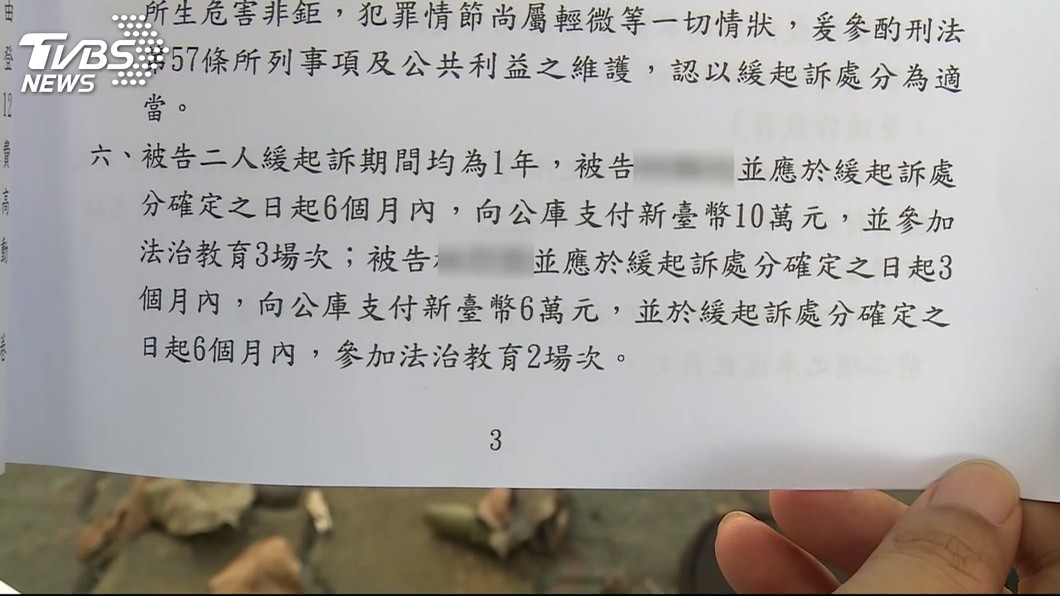 TVBS
NEWS
所生危害非鉅，犯罪情節尚屬輕微等一切情狀，爰參酌刑法
第57條所列事項及公共利益之維護，認以緩起訴處分為適
當。
六、被告二人緩起訴期間均為1年，被告 並應於緩起訴處
分確定之日起6個月內，向公庫支付新臺幣10萬元，並參加
法治教育3場次；被告 並應於緩起訴處分確定之日起3
個月內，向公庫支付新臺幣6萬元，並於緩起訴處分確定之
日起6個月內，參加法治教育2場次。
3
由
登
12
費
高
動